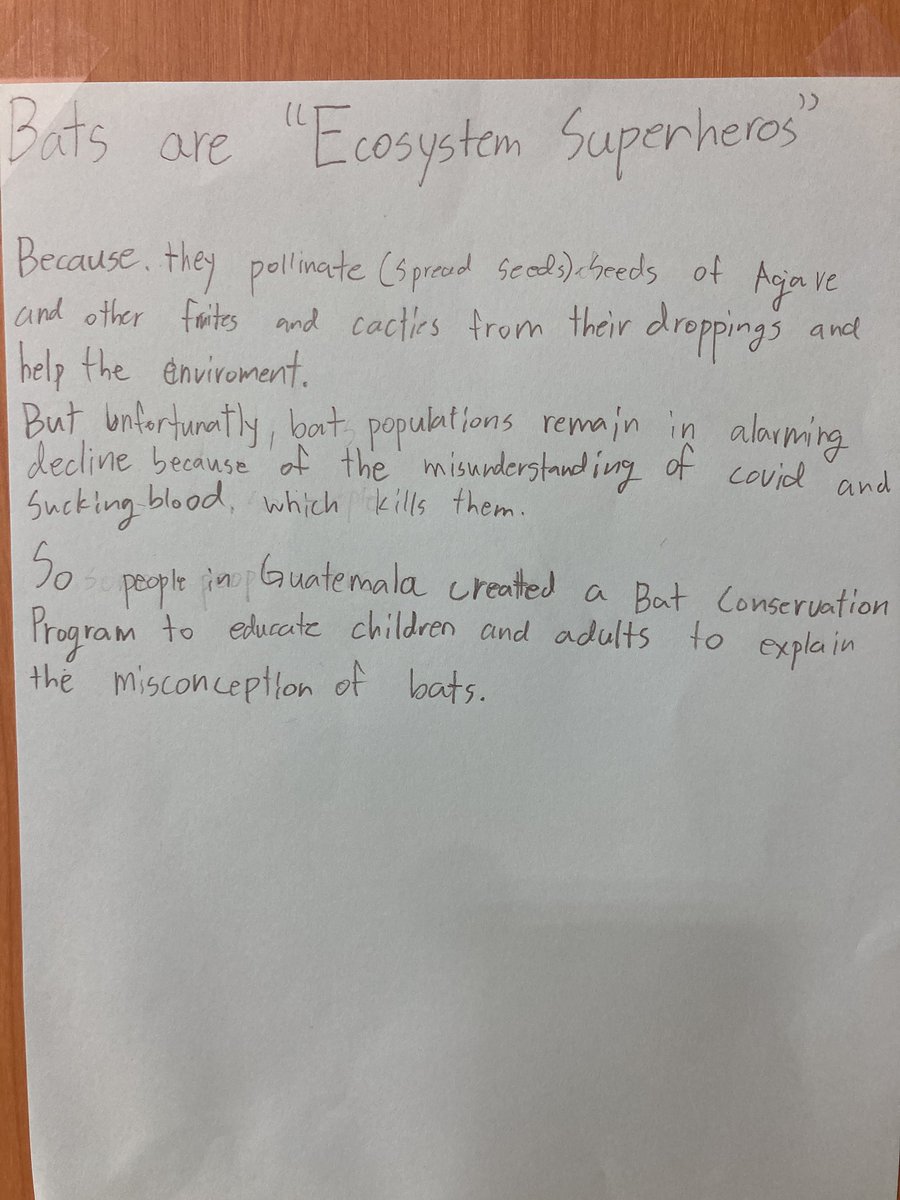 Bats are "Ecosystem Superheros"
Because. they pollinate (spread seeds) seeds of Agave
and other fruites and cacties from their droppings and
help the enviroment.
But unfortunatly, bat populations remain in alarming
decline because of the misunderstanding of covid and
sucking blood, which kills them.
So people in Guatemala created a Bat Conservation
Program to educate children and adults to explain
the misconception of bats.